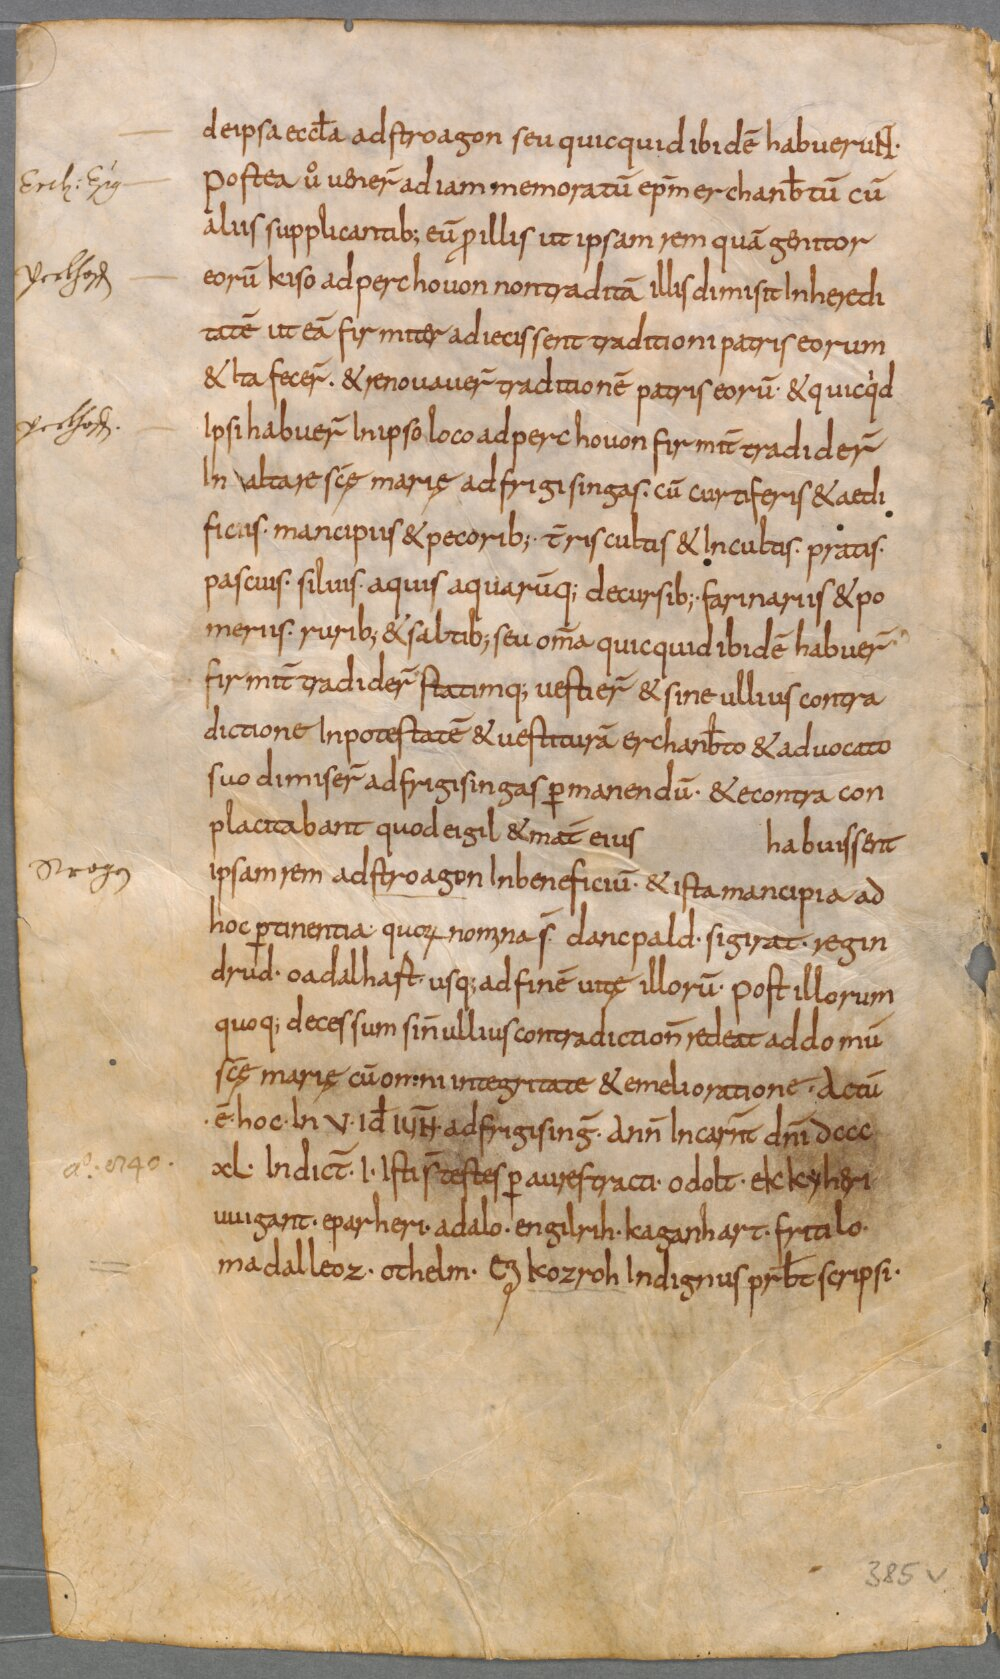 deipsa eccƚa adstroagon seu quicquid ibidē habuerunt·
Erch: Epig
postea uͦ uener̄ ad iam memoratū epm̄ erchanb̄tū cū
aliis supplicantib; eū ꝓ illis ut ipsam rem quā genitor
eorū kiso ad perchouon non traditā illis dimisit In heredi
tatē ut eā firmiter adiecissent traditioni patris eorum
& Ita fecer̄· & renovauer̄ traditionē patris eorū· & quicqͥd
Ipsi habuer̄ In ipso loco ad perchouon firmit̄ tradider̄
In altare sc̄ę marię ad frigisingas· cū curtiferis & aedi
ficiis· mancipiis & pecorib;· t̄ris cultis & Incultis· pratis·
pascuis· siluis· aquis aquarūq; decursib;· farinariis & po
meriis· rurib; & saltib; seu om̄a quicquid ibidē habuer̄
firmit̄ tradider̄ statimq; uestier̄ & sine ullius contra
dictione In potestatē & uestiturā erchanb̄to & aduocato
suo dimiser̄ ad frigisingas ꝑmanendū· & econtra con
placitabant quod eigil & mat̄ eius habuissent
ipsam rem ad stroagon In beneficiū· & ista mancipia ad
hoc ꝑtinentia· quoꝝ nomina s̄· dancpald· sigirat· regin
drud· oadalhaft· usq; ad finē uitę illorū· post illorum
quoq; decessum sin̄ ullius contradiction̄ redeat ad domū
sc̄ę marię cū omni integritate & emelioratione· Actū
·ē· hoc· In V· Id̄ IUN̄· ad frigisinḡ· Ann̄ Incarn̄t dn̄i dccc
aͦ· 840·
xl· Indict̄· I· Isti s̄ testes ꝑ aures tracti· odolt· ekkyheri
uuigant· eparheri· adalo· engilrih· kaganhart· fritilo·
madalleoz· othelm· Ego kozroh Indignus prb̄t scripsi·
385 v